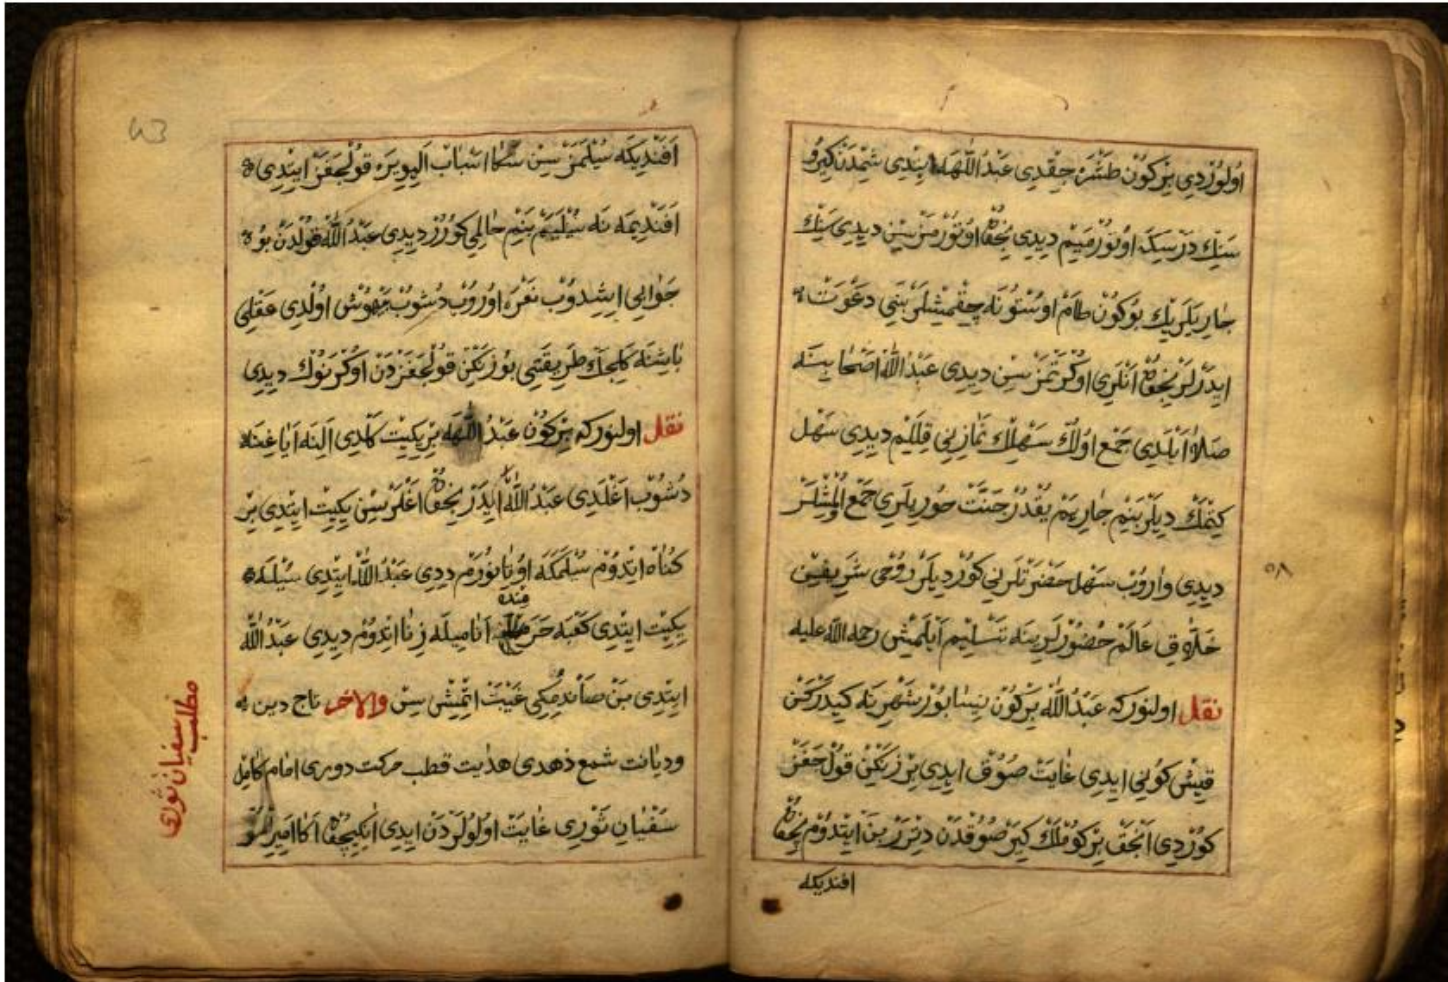 اُولُورْدِي بِرْ كُونْ طَشْرَه چِقْدِي عَبْدُ اللّٰهَه اَيِتْدِي شِمْدَنْ كِيرُو
سَنِكْ دَرْسِكَه اُوتُورْمَيَمْ دِيدِي نِجُونْ اُوتُورْمَزْ سِنْ دِيدِي سَنِكْ
جَارِيَلَرِيكْ بُوكُونْ طَامْ اوُسْتُونَه چِقْمِيشْلَرْ بَنِي دَعْوَتْ
اَيدَرْلَرْ نِيجُونْ اَنْلَرِي اوُكْرَتْمَزْ سِنْ دِيدِي عَبْدُ اللّٰه اَصْحَابِينَه
صَلَاهْ اَيْلَدِي جَمْعْ اوُلُكْ سَهْلِكْ نَمَازِنِي قِلَالِيمْ دِيدِي سَهْل
كِتْمَكْ دِيلَرْ بَنِيمْ جَارِيَمْ يُقْدُرْ جَنَّتْ حُورِيلَرِي جَمْع اُولْمِشْلَرْ
دِيدِي وَارُوبْ سَهْل حَضْرَتْلَرِنِي كُورْدِيلَرْ رُوحِ شَرِيفِينْ
خَلَّاقِ عَالَمْ حُضُورْلَرِينَه تَسْلِيمْ اَيْلَمِشْ رحمه اللّٰه عليه
نقل اولنوركه عَبْدُ اللّٰه بِرْكُونْ نِيسَابُورْ شَهْرِنَه كِيدَرْكَنْ
قِيشْ كُونِي ايدِي غَايَتْ صُوُوقْ ايدِي بِرْ زَنْكِنْ قُولْجَغَزْ
كُورْدِي اَنْجَقْ بِرْ كُوكْلَكْ كِيَرْ صُوُوقْدَنْ دِتْرَرْ بَنْ اَيِتْدُومْ نِچُونْ
افنديكه
٥٨
43
اَفَنْدِيكَه سُيْلَمَزْ سِنْ سَكَا اَسْبَابْ اَلِيوِيرَه قُولْجَغَزْ اَيِتْدِي
اَفَنْدِيمَه نَه سُيْلَيَيمْ بَنِيمْ حَالِمِي كُورُرْ دِيدِي عَبْدُ اللّٰه قُولْدَنْ بُو
جَوَابِي اِيشِدُوبْ نَعْرَه اوُرُوبْ دُشُوبْ مَدْهُوشْ اوُلْدِي عَقْلِي
بَاشِنَه كَلِيجَكْ طَرِيقَتِي بُو زَنْكِنْ قُولْجَغَزْدَنْ اوُكْرَنُوكْ دِيدِي
نقل اولنوركه بِرْكُونْ عَبْدُ اللّٰهَه بِرْ يِكِيتْ كَلْدِي اَلِنَه اَيَاغِنَه
دُشُوبْ اَغْلَدِي عَبْدُ اللّٰه اَيدَرْ نِيجُونْ اَغْلَرْسِنْ يِكِيتْ اَيِتْدِي بِرْ
كُنَاهْ اِتْدُومْ سُيْلَمَكَه اوُتَانُورَمْ دِدِي عَبْدُ اللّٰه اَيِتْدِي سُيْلَه
يِكِيتْ اَيِتْدِي كَعْبَه حَرَمِنْدَه اَنَامِيلَه زِنَا اِتْدُومْ دِيدِي عَبْدُ اللّٰه
اَيِتْدِي بَنْ صَانْدُمْكِي غَيْبَتْ اِتْمِشْ سِنْ والاخر تاج دين
وديانت شمع ذهدى هدايت قطب حركت دورى امام كامل
سَفْيَانِ ثَوْرِي غَايَتْ اوُلُولَرْدَنْ ايدِي اَنِكِيچُونْ اَكَا اَمِيرُ
مطلب سفيان ثورى